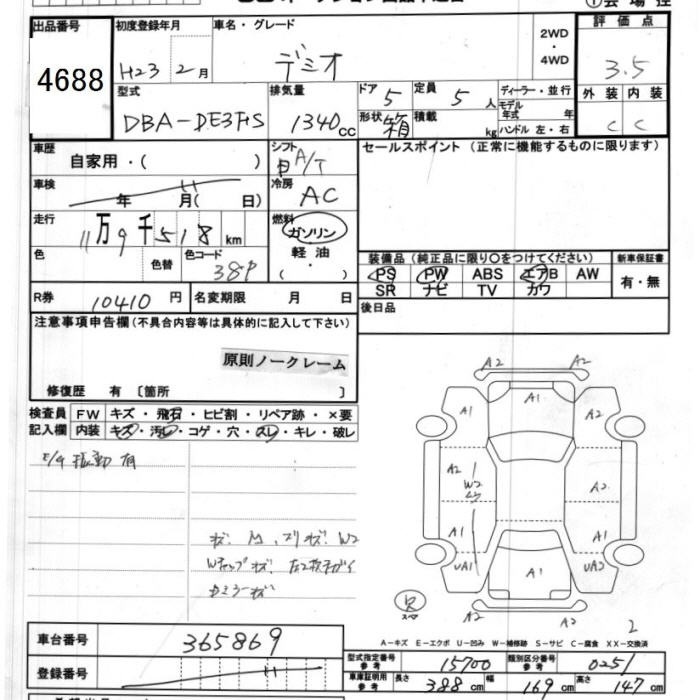 出品番号 初度登録年月 車名・グレード 2WD・4WD 評価点
4688 H23 2月 デミオ 3.5
型式 排気量 ドア 5 定員 5人 ディーラー・並行 外装 内装
DBA-DE3FS 1340cc 形状 箱 積載 kg モデル年式 年 ハンドル 左・右 C C
車歴 自家用・( ) シフト A/T セールスポイント (正常に機能するものに限ります)
車検 年 月( 日) 冷房 AC
走行 11万9千518km 燃料 ガソリン・軽油・( )
色 色替 色コード 38P
装備品 (純正品に限り〇をつけてください) 新車保証書
PS PW ABS エアB AW 有・無
SR ナビ TV カワ
R券 10410円 名変期限 月 日 後日品
注意事項申告欄 (不具合内容等は具体的に記入して下さい)
原則ノークレーム
修復歴 有 〔箇所 〕
検査員記入欄 FW キズ・飛石・ヒビ割・リペア跡・×要
内装 キズ・汚レ・コゲ・穴・スレ・キレ・破レ
E/G 振動 有
A2 A2
A1 A1 A2
A2 W2 A2
A1 A1
UA1 A1 UA2
A2 A2
スペア
2
A-キズ E-エクボ U-凹み W-補修跡 S-サビ C-腐食 XX-交換済
車台番号 365869
型式指定番号 参考 15700 類別区分番号 参考 0251
登録番号
車庫証明用 参考 長さ 388cm 幅 169cm 高さ 147cm